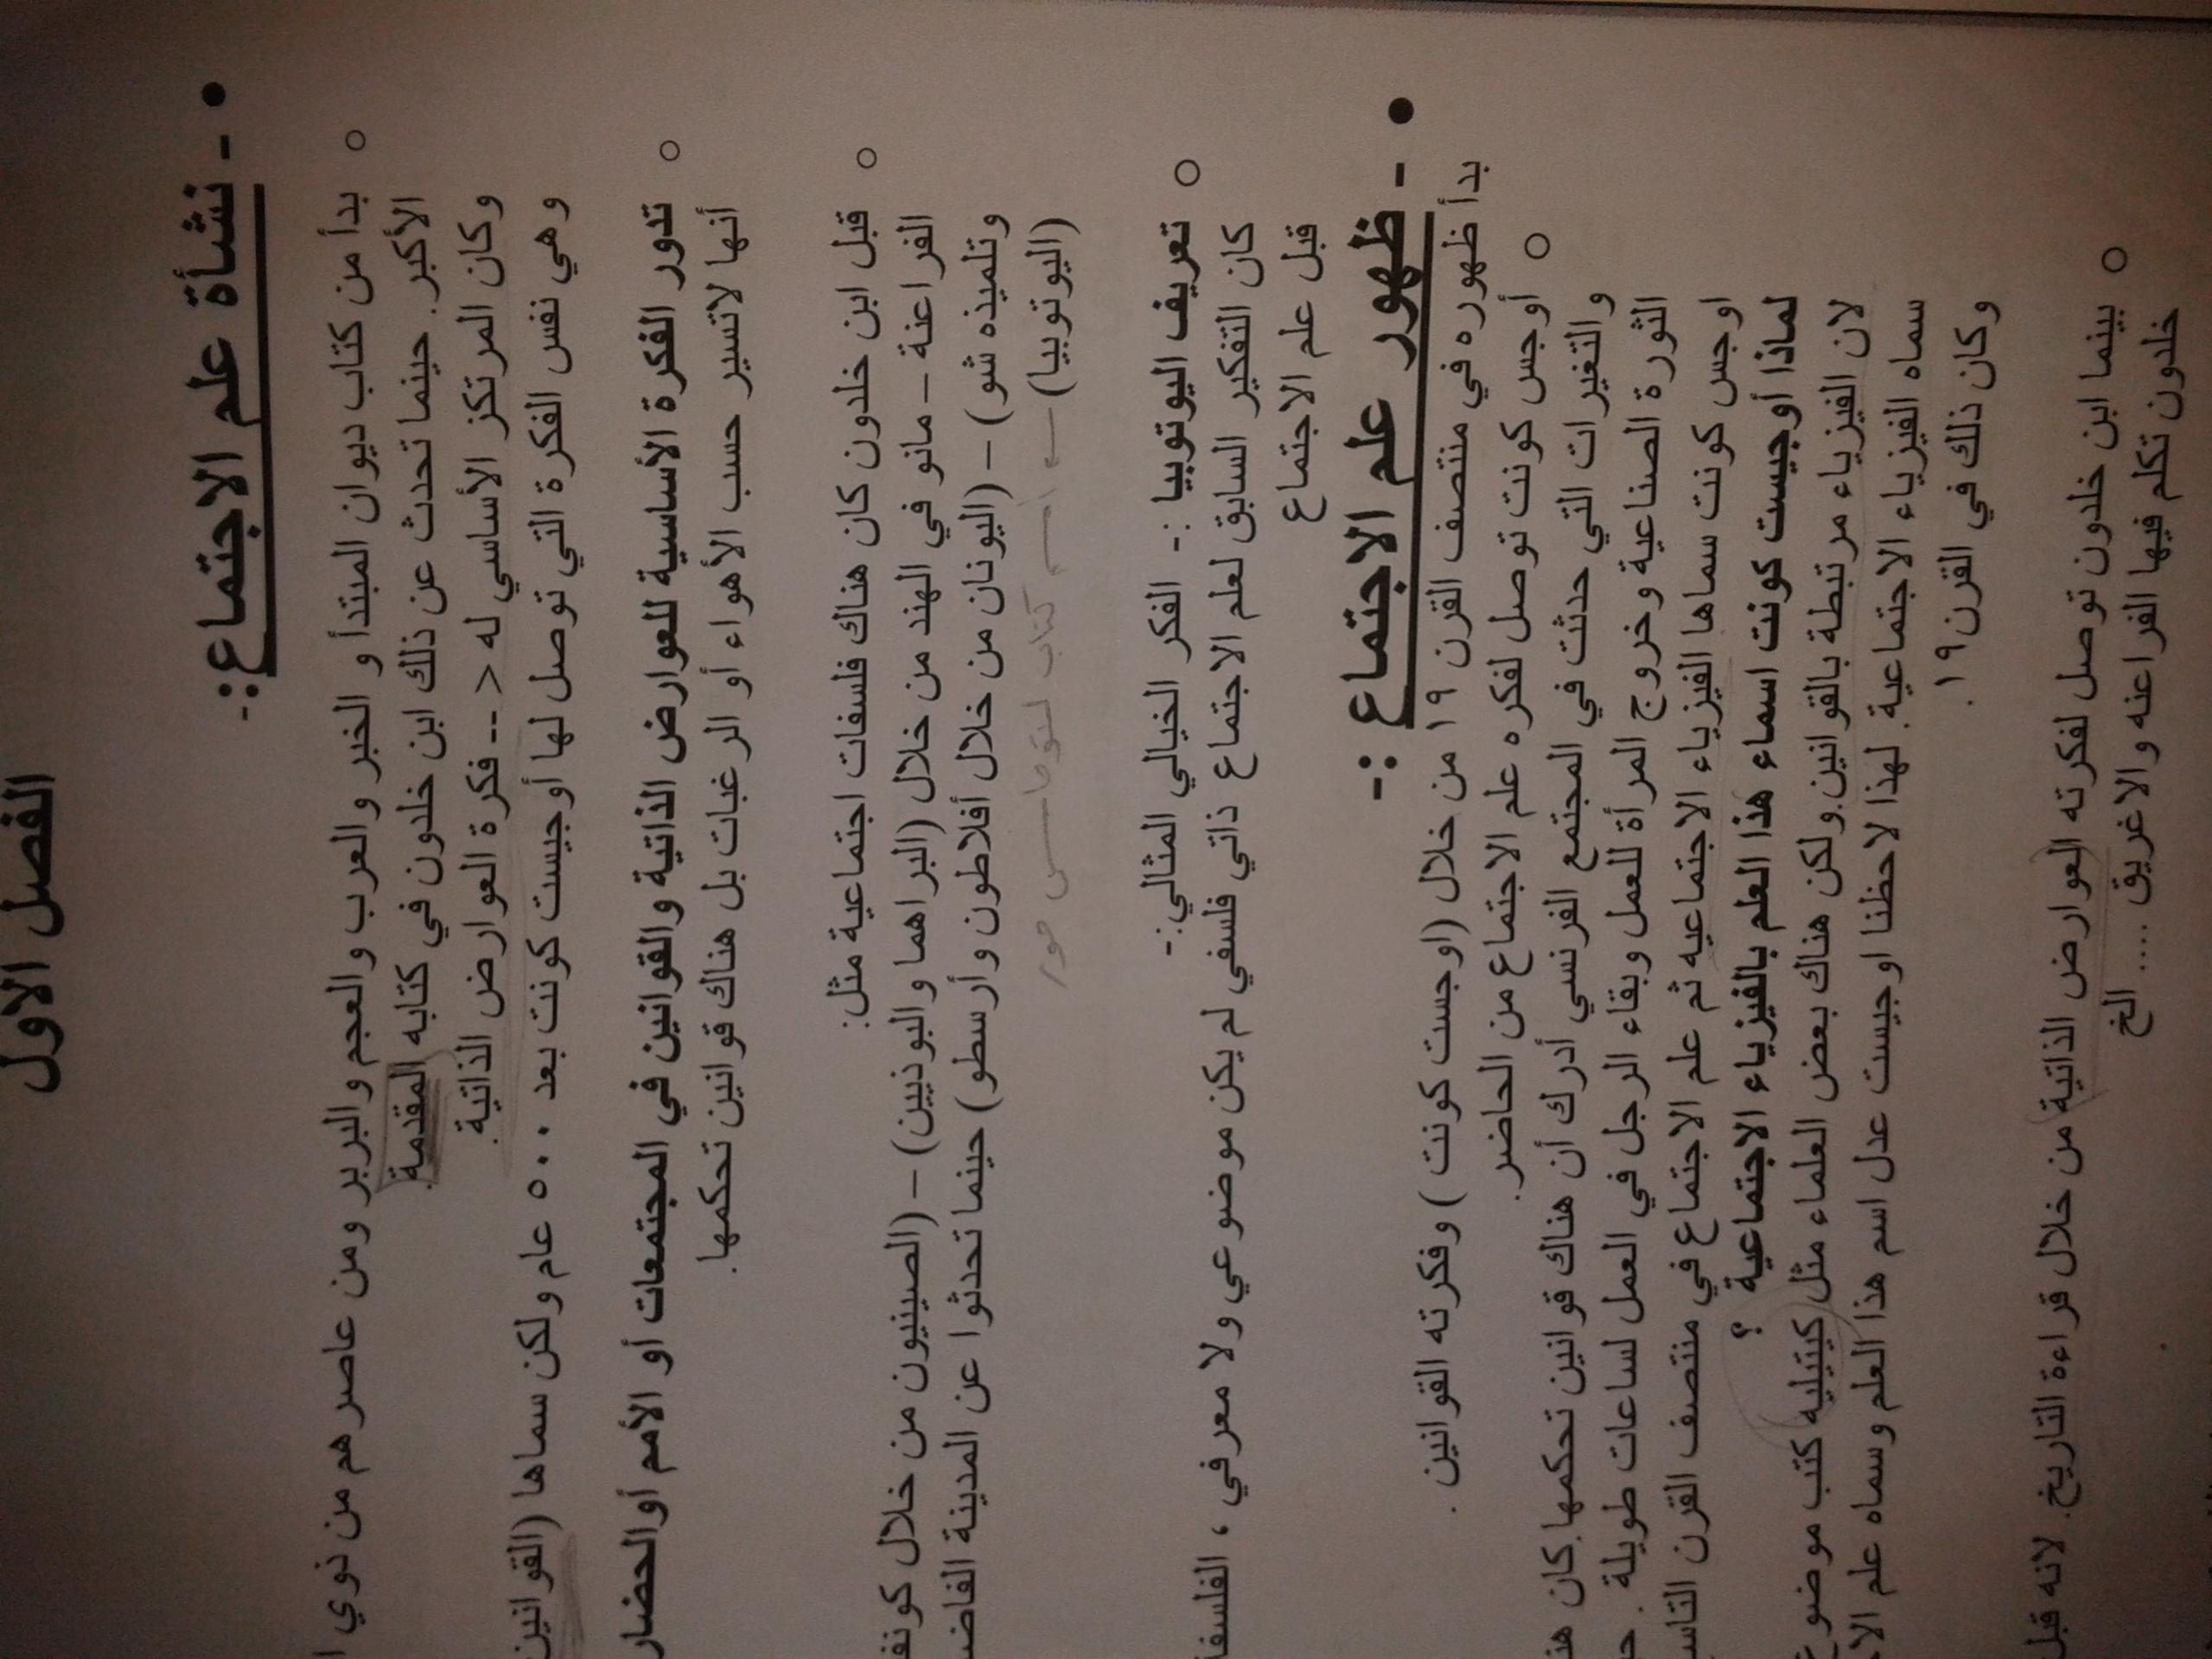 الفصل الاول
• - نشأة علم الاجتماع:-
○ بدأ من كتاب ديوان المبتدأ و الخبر والعرب والعجم والبربر ومن عاصرهم من ذوي ا
الأكبر. حينما تحدث عن ذلك ابن خلدون في كتابه المقدمة.
وكان المرتكز الأساسي له <-- فكرة العوارض الذاتية.
وهي نفس الفكرة التي توصل لها أوجيست كونت بعد ٥٠٠ عام ولكن سماها (القوانين
○ تدور الفكرة الأساسية للعوارض الذاتية والقوانين في المجتمعات أو الأمم أوالحضار
أنها لاتسير حسب الأهواء أو الرغبات بل هناك قوانين تحكمها.
○ قبل ابن خلدون كان هناك فلسفات اجتماعية مثل:
الفراعنة – مانو في الهند من خلال (البراهما والبوذيين) – (الصينيون من خلال كونف
وتلميذه شو) – (اليونان من خلال أفلاطون وأرسطو) حينما تحدثوا عن المدينة الفاض
(اليوتوبيا)
كتاب لتوماس مور
○ تعريف اليوتوبيا :- الفكر الخيالي المثالي:-
كان التفكير السابق لعلم الاجتماع ذاتي فلسفي لم يكن موضوعي ولا معرفي ، الفلسفا
قبل علم الاجتماع
• - ظهور علم الاجتماع :-
بدأ ظهوره في منتصف القرن ١٩ من خلال (اوجست كونت ) وفكرته القوانين .
○ أوجس كونت توصل لفكره علم الاجتماع من الحاضر.
والتغيرات التي حدثت في المجتمع الفرنسي أدرك أن هناك قوانين تحكمها.كان هنا
الثورة الصناعية وخروج المرأة للعمل وبقاء الرجل في العمل لساعات طويلة . ح
اوجس كونت سماها الفيزياء الاجتماعيه ثم علم الاجتماع في منتصف القرن التاس
لماذا أوجيست كونت اسماء هذا العلم بالفيزياء الاجتماعية ؟
لان الفيزياء مرتبطة بالقوانين.ولكن هناك بعض العلماء مثل كيتيليه كتب موضوع
سماه الفيزياء الاجتماعية. لهذا لاحظنا اوجيست عدل اسم هذا العلم وسماه علم الا
وكان ذلك في القرن١٩ .
○ بينما ابن خلدون توصل لفكرته العوارض الذاتية من خلال قراءة التاريخ. لانه قبل
خلدون تكلم فيها الفراعنه والاغريق .... الخ